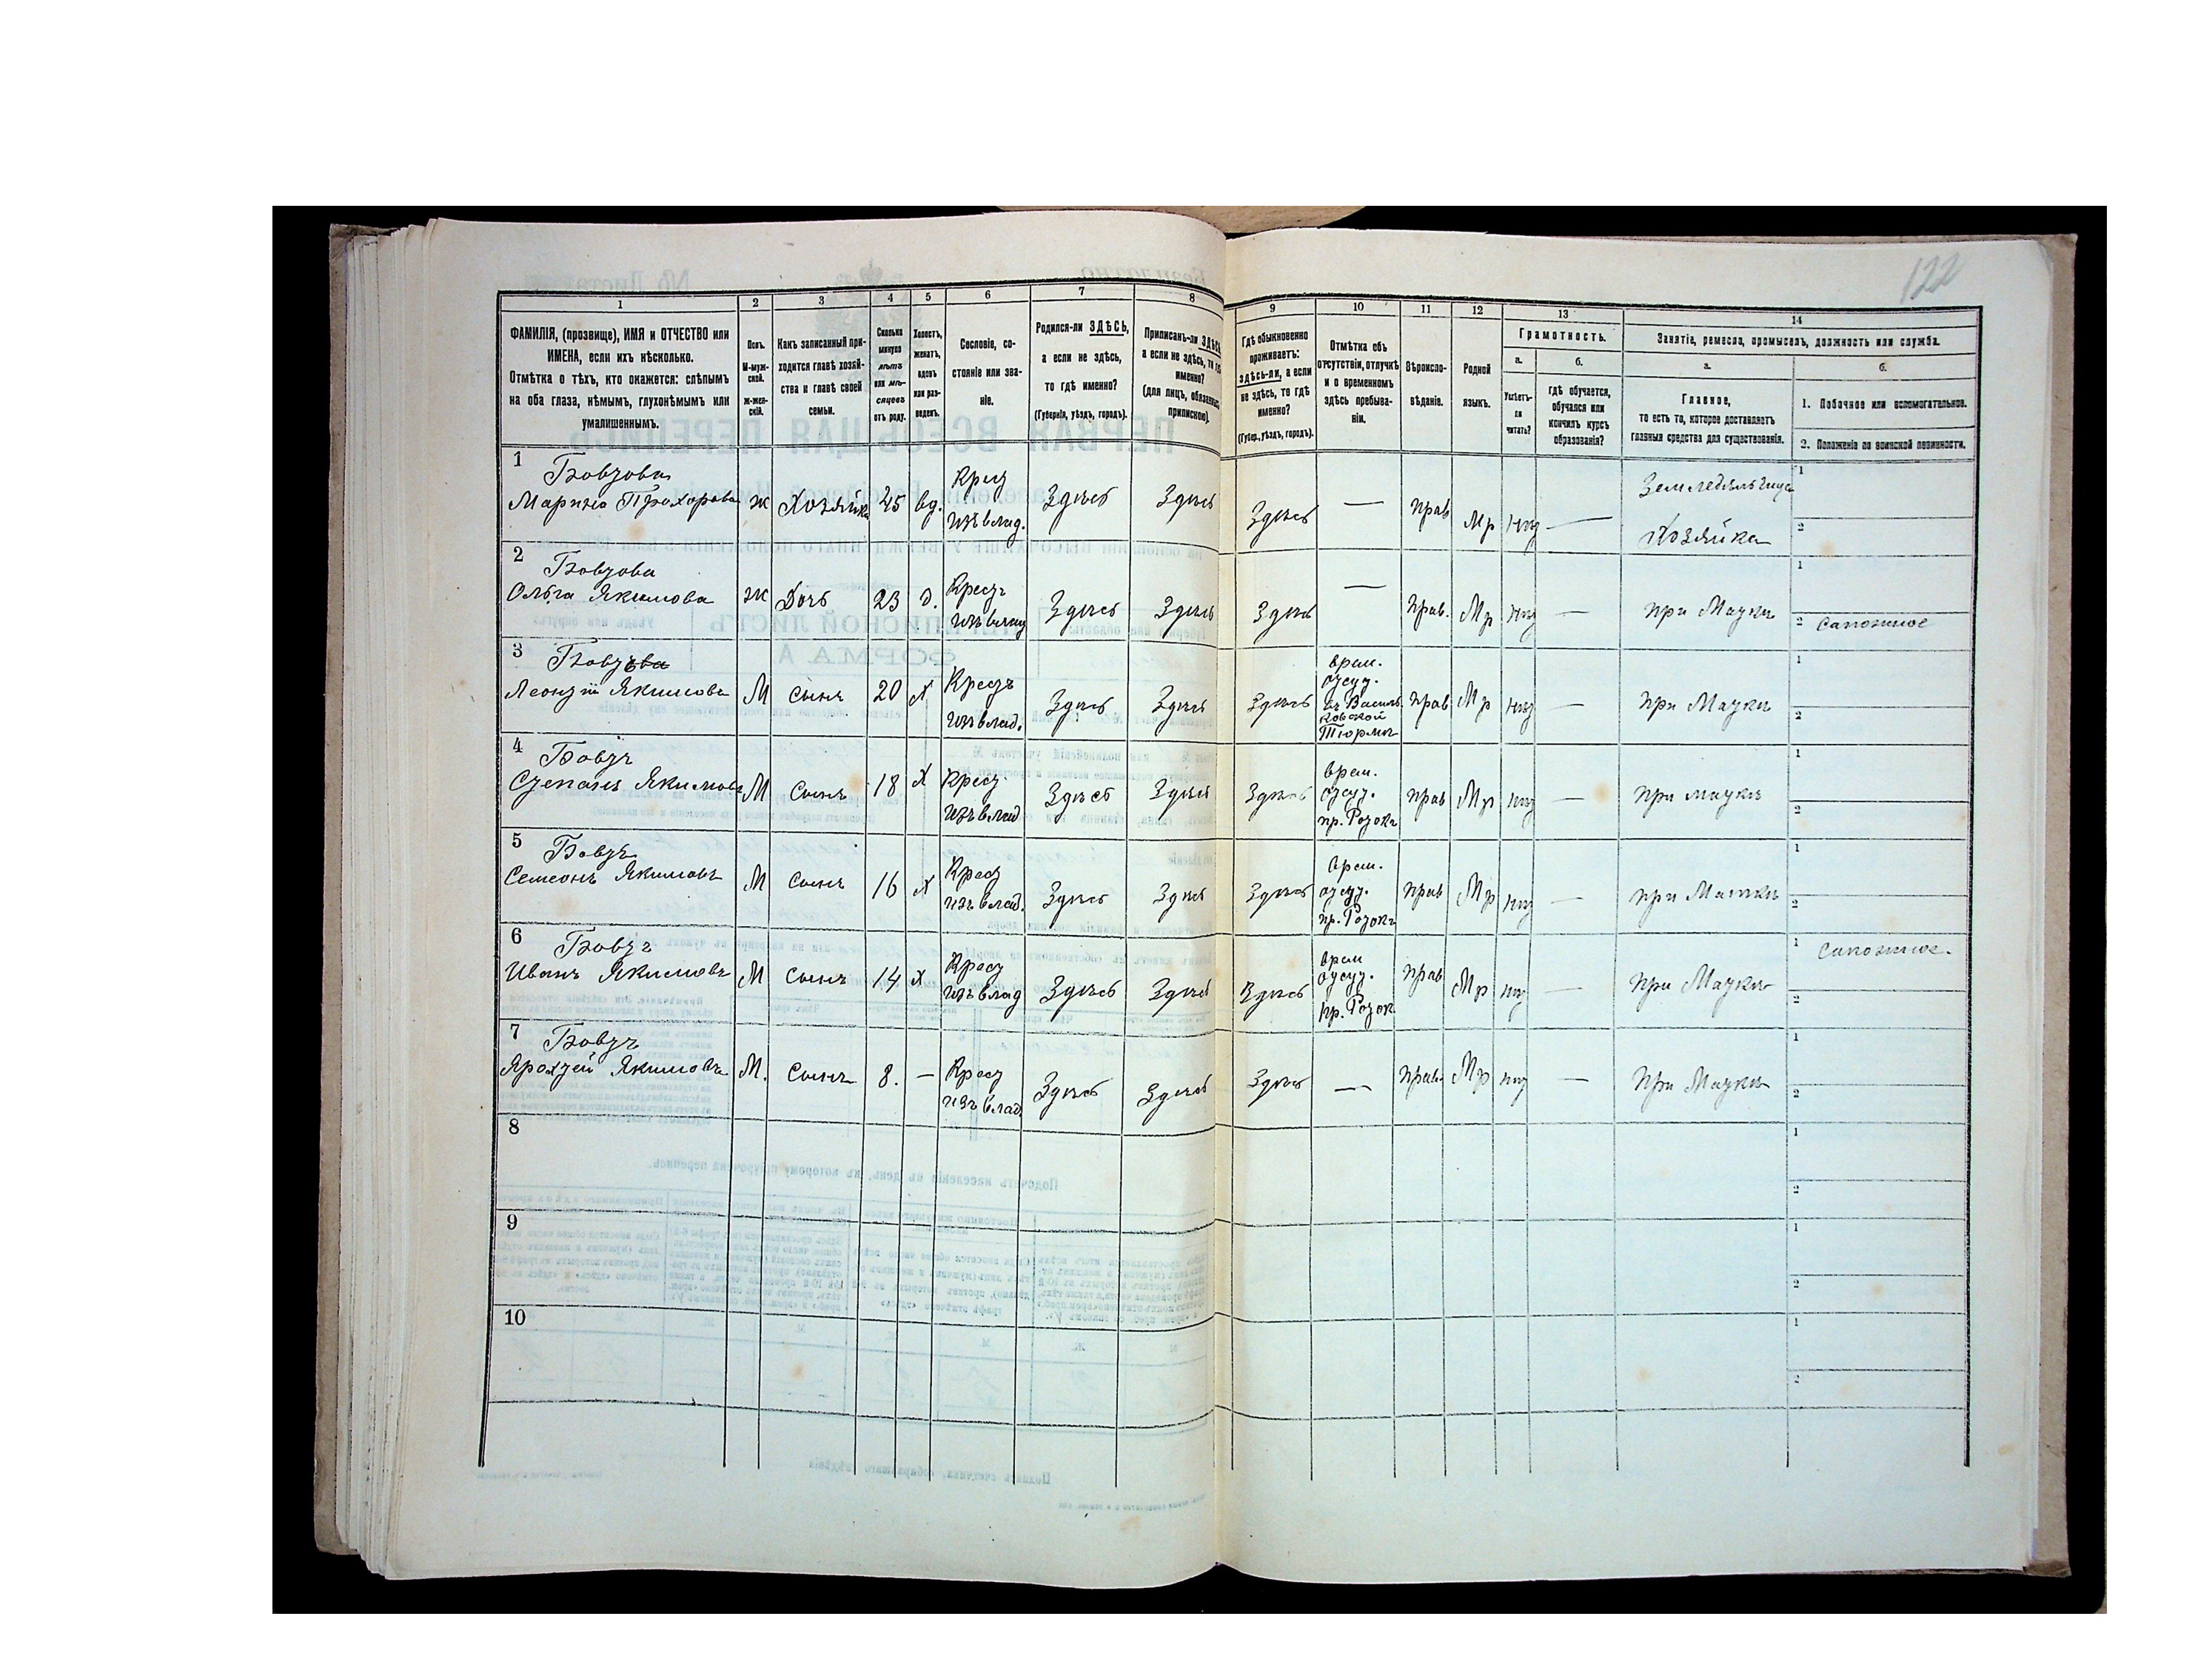 122
1
2
3
4
5
6
7
8
9
10
11
12
13
14
ФАМИЛІЯ, (прозвище), ИМЯ и ОТЧЕСТВО или
ИМЕНА, если ихъ нѣсколько.
Отмѣтка о тѣхъ, кто окажется: слѣпымъ
на оба глаза, нѣмымъ, глухонѣмымъ или
умалишеннымъ.
Полъ.
М-муж-
ской.
ж-жен-
скій.
Какъ записанный при-
ходится главѣ хозяй-
ства и главѣ своей
семьи.
Сколько
минуло
лѣтъ
или мѣ-
сяцевъ
отъ роду.
Холостъ,
женатъ,
вдовъ
или раз-
веденъ.
Сословіе, со-
стояніе или зва-
ніе.
Родился-ли ЗДѢСЬ,
а если не здѣсь,
то гдѣ именно?
(Губернія, уѣздъ, городъ).
Приписанъ-ли ЗДѢСЬ,
а если не здѣсь, то гдѣ
именно?
(для лицъ, обязанныхъ
припискою).
Гдѣ обыкновенно
проживаетъ:
здѣсь-ли, а если
не здѣсь, то гдѣ
именно?
(Губер., уѣздъ, городъ).
Отмѣтка объ
отсутствіи, отлучкѣ
и о временномъ
здѣсь пребыва-
ніи.
Вѣроиспо-
вѣданіе.
Родной
языкъ.
Грамотность.
а.
Умѣетъ-
ли
читать?
б.
Гдѣ обучается,
обучался или
кончилъ курсъ
образованія?
Занятіе, ремесло, промыселъ, должность или служба.
а.
Главное,
то есть то, которое доставляетъ
главныя средства для существованія.
б.
1. Побочное или вспомогательное.
2. Положеніе по воинской повинности.
1 Бовтова
Марина Прохорова ж Хозяйка 45 вд. Крест
изъ влад. Здѣсь Здѣсь Здѣсь — прав Мр нѣт — Земледѣльчица
Хозяйка 1
2
2 Бовтова
Ольга Якимова ж Дочь 23 д. Крестъ
изъ влад Здѣсь Здѣсь Здѣсь — прав. Мр нѣт — при Матки 1
2
3 Бовтова
Леонтій Якимовъ М сынъ 20 х Крестъ
изъ влад. Здѣсь Здѣсь Здѣсь врем.
отсут.
въ Василь
ковской
Тюрмѣ прав Мр нѣт — при Матки 1
2
4 Бовтъ
Степанъ Якимовъ М Сынъ 18 х Крест
изъ влад Здѣсь Здѣсь Здѣсь врем.
отсут.
пр. Ротокъ прав Мр нѣт — при матки 1
2
5 Бовтъ
Семеонъ Якимовъ М Сынъ 16 х Крест
изъ влад. Здѣсь Здѣсь Здѣсь врем.
отсут.
пр. Ротокъ прав Мр нѣт — при Матки 1
2
6 Бовтъ
Иванъ Якимовъ М Сынъ 14 х Крест
изъ влад Здѣсь Здѣсь Здѣсь врем
отсут.
пр. Роток прав Мр нѣт — при Матки 1
2
7 Бовтъ
Якимовъ М. Сынъ 8. — Крест
изъ влад Здѣсь Здѣсь Здѣсь — прав. Мр нѣт — при Матки 1
2
8 1
2
9 1
2
10 1
2